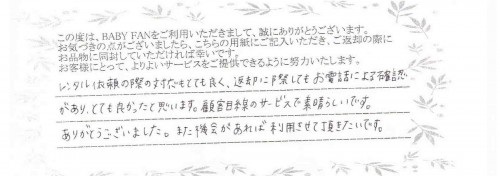 この度は、BABY FANをご利用いただきまして、誠にありがとうございます。
お気づきの点がございましたら、こちらの用紙にご記入いただき、ご返却の際に
お品物に同封していただければ幸いです。
お客様にとって、よりよいサービスをご提供できるように努力いたします。
レンタル依頼の際の対応もとても良く、返却に際してもお電話による確認
があり、とても良かったと思います。顧客目線のサービスで素晴らしいです。
ありがとうございました。また機会があれば利用させて頂きたいです。